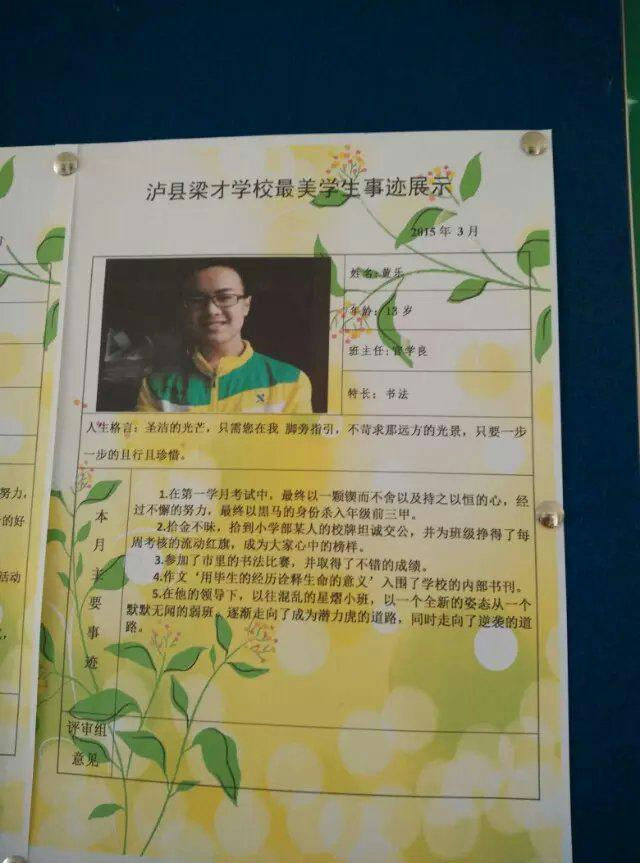 泸县梁才学校最美学生事迹展示
2015年 3月
姓名: 黄乐
年龄: 13 岁
班主任: 官学良
特长: 书法
人生格言: 圣洁的光芒, 只需您在我 脚旁指引, 不苛求那远方的光景, 只要一步
一步的且行且珍惜。
本月主要事迹
1.在第一学月考试中, 最终以一颗锲而不舍以及持之以恒的心, 经
过不懈的努力, 最终以黑马的身份杀入年级前三甲。
2.拾金不昧, 拾到小学部某人的校牌坦诚交公, 并为班级挣得了每
周考核的流动红旗, 成为大家心中的榜样。
3.参加了市里的书法比赛, 并取得了不错的成绩。
4.作文‘用毕生的经历诠释生命的意义’入围了学校的内部书刊。
5.在他的领导下, 以往混乱的星熠小班, 以一个全新的姿态从一个
默默无闻的弱班。逐渐走向了成为潜力虎的道路, 同时走向了逆袭的道
路。
评审组
意见
努力,
的好
活动